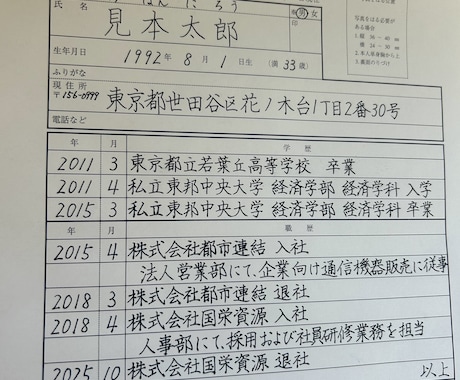 氏名
見本太郎
印
男 女
生年月日 1992年 8月 1日生 (満 33歳)
ふりがな
現住所
〒156-0999
東京都世田谷区花ノ木台1丁目2番30号
電話など
写真をはる必要が
ある場合
年 月 学歴
2011 3 東京都立若葉丘高等学校 卒業
2011 4 私立東邦中央大学 経済学部 経済学科 入学
2015 3 私立東邦中央大学 経済学部 経済学科 卒業
年 月 職歴
2015 4 株式会社都市連結 入社
法人営業部にて、企業向け通信機器販売に従事
2018 3 株式会社都市連結 退社
2018 4 株式会社国栄資源 入社
人事部にて、採用および社員研修業務を担当
2025 10 株式会社国栄資源 退社
以上